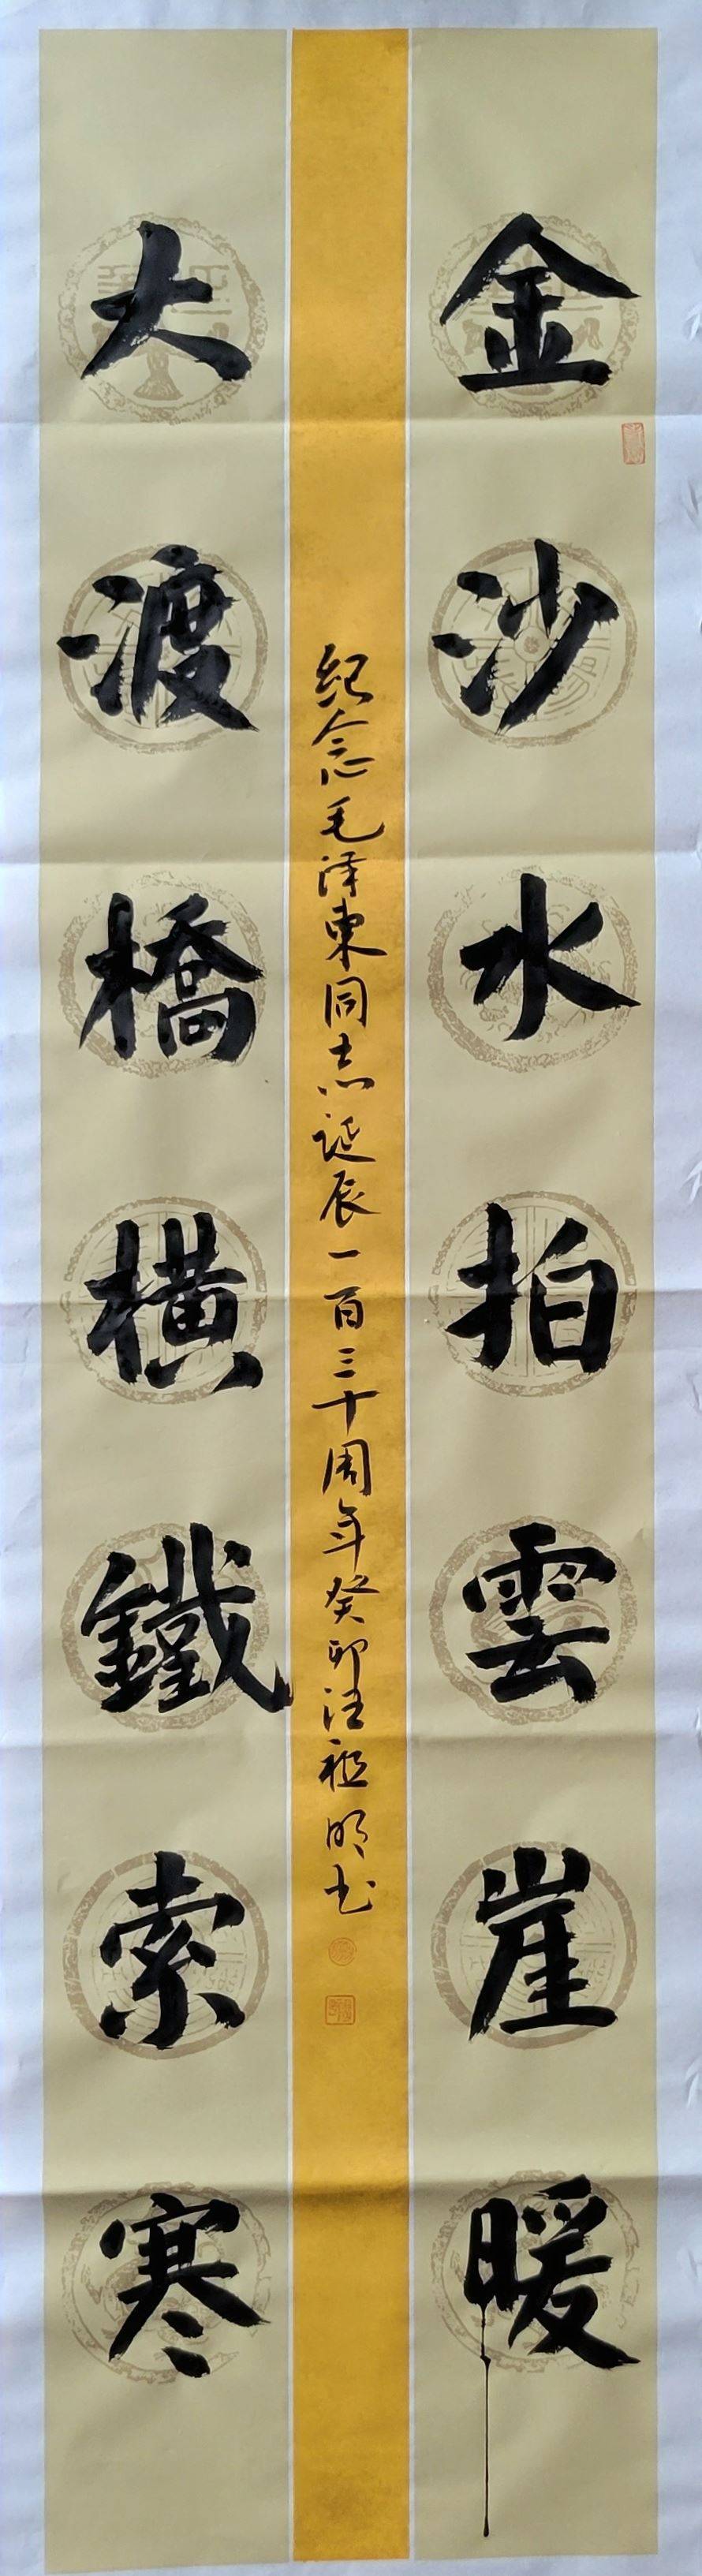 金沙水拍雲崖暖
大渡橋橫鐵索寒
纪念毛泽東同志诞辰一百三十周年癸卯汪祖明书